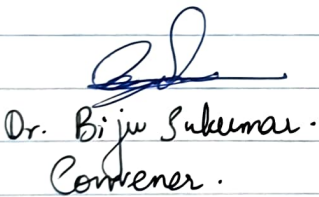 Dr. Biju Sukumar.
Convener.